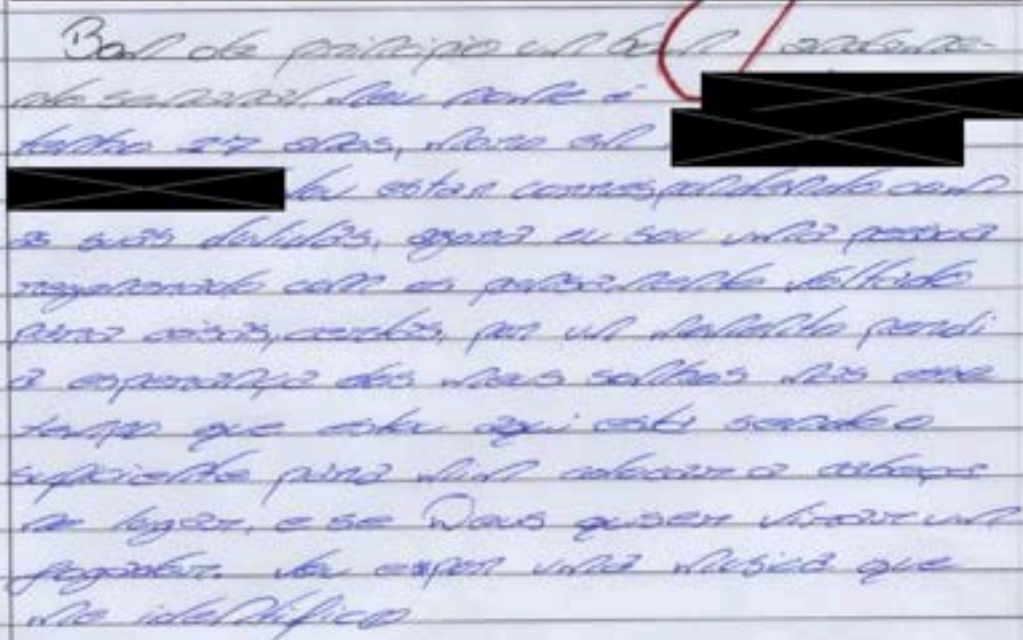 Bom de principio um bom
meu nome é
tenho 27 anos, moro em
Vou estar correspondendo com
as suas duvidas, agora eu sou uma pessoa
regenerado com os pensamento voltido
para coisas, certas, por um momento perdi
a esperança dos meus sonhos mas esse
tempo que estou aqui está sendo o
suficiente para mim colocar a cabeça
no lugar, e se Deus quiser virar um
jogador. Vou expor uma musica que
me identifico